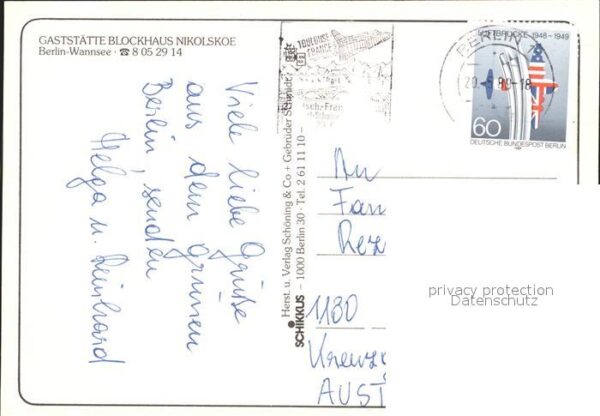 GASTSTÄTTE BLOCKHAUS NIKOLSKOE
Berlin-Wannsee · ☎ 8 05 29 14
Viele liebe Grüße
aus dem grünen
Berlin, senden
Helga u. Reinhard
Herst. u. Verlag Schöning & Co + Gebrüder Schmidt
SCHIKKUS – 1000 Berlin 30 · Tel. 2 61 11 10 –
TOULOUSE
FRANCE
BERLIN
LUFTBRÜCKE 1948-1949
60
DEUTSCHE BUNDESPOST BERLIN
An
Fam
Rez
1180
AUST
privacy protection
Datenschutz